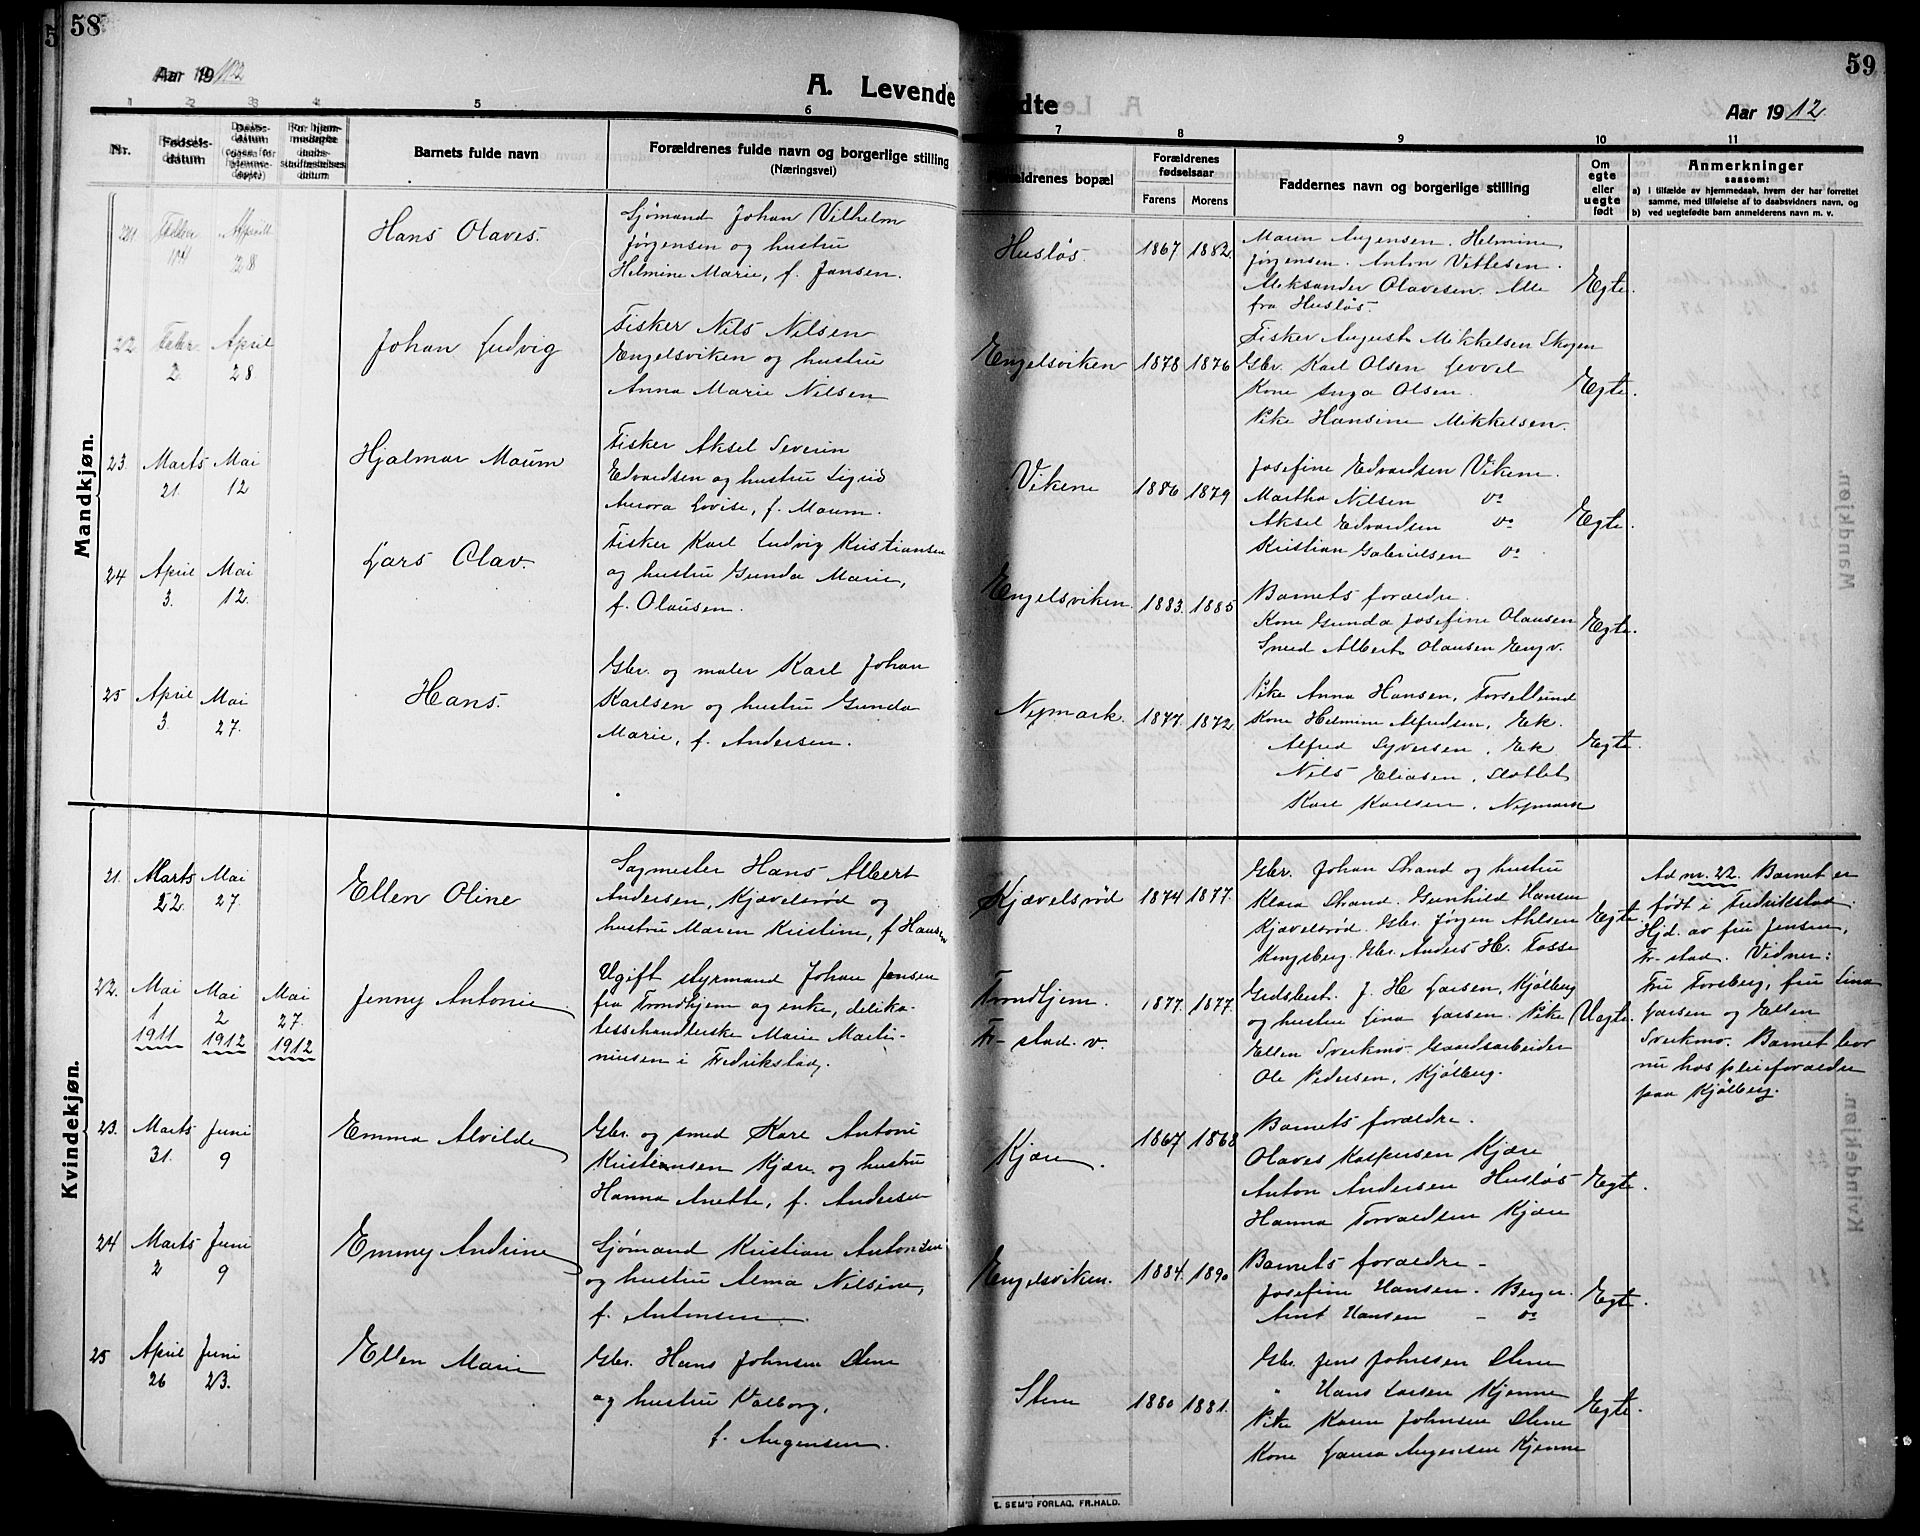 58
Aar 1912
A. Levende
1 2 3 4 5 6
Nr.
Fødselsdatum
Daabsdatum
Barnets fulde navn
Forældrenes fulde navn og borgerlige stilling
(Næringsvei)
Mandkjøn.
21
28
Hans Olaves.
Sjømand Johan Vilhelm
Jørgensen og hustru
Helmine Marie, f. Jansen.
22 Febr. April
2 28
Johan Ludvig
Fisker Nils Nilsen
Engelsviken og hustru
Anna Marie Nilsen
23. Marts Mai
21. 12
Hjalmar Maum
Fisker Aksel Severin
Edvardsen og hustru Sigrid
Aurora Lovise, f. Maum.
24 April Mai
3. 12.
Lars Olav.
Fisker Karl Ludvig Kristiansen
og hustru Gunda Marie,
f. Olausen.
25 April Mai
3. 27.
Hans.
Gbr. og maler Karl Johan
Karlsen og hustru Gunda
Marie, f. Andersen.
Kvindekjøn.
21. Marts Mai
22. 27.
Ellen Oline
Sagmester Hans Albert
Andersen, Kjævelsrød og
hustru Maren Kristine, f Hansen
22. Mai Mai Mai
1 2 27.
1911 1912 1912
Jenny Antonie
Ugift styrmand Johan Jensen
fra Trondhjem og enke, delika-
tessehandlerske Marie Marti-
niusen i Fredrikstad.
23. Marts Juni
31. 9
Emma Alvilde
Gbr. og smed Karl Antoni
Kristiansen Kjære og hustru
Hanna Anette, f. Andersen
24 Marts Juni
2 9
Emmy Andrine
Sjømand Kristian Antonsen
og hustru Alma Nilsine,
f. Antonsen.
25 April Juni
26 23.
Ellen Marie
Gbr. Hans Johnsen Elene
og hustru Valborg,
f. Augensen.
59
Aar 1912.
dte
7 8 9 10 11
Forældrenes bopæl
Forældrenes
fødselsaar
Farens Morens
Faddernes navn og borgerlige stilling
Om
egte
eller
uegte
født
Anmerkninger
saasom:
a) i tilfælde av hjemmedaab, hvem der har forrettet
samme, med tilføielse af to daabsvidners navn, og
b) ved uegtefødte barn anmelderens navn m. v.
Husløs. 1867 1882.
Maren Augensen. Helmine
Jørgensen. Anton Vettesen.
Aleksander Olavesen. Alle
fra Husløs.
Egte.
Engelsviken 1878 1876
Fisker August Mikkelsen Skogen
Gbr. Karl Olsen Levvel
Kone Inga Olsen.
Pike Hansine Mikkelsen.
Egte.
Vikene 1886 1879
Josefine Edvardsen Vikene.
Martha Nilsen do
Aksel Edvardsen do
Kristian Gabrielsen do
Egte.
Engelsviken. 1883. 1885
Barnets forældre.
Kone Gunda Josefine Olausen
Smed Albert Olausen Eng.v.
Egte.
Nymark. 1877. 1872.
Pike Anna Hansen, Torsellund
Kone Helmine Alfredsen, Ek.
Alfred Syversen, Ek
Nils Eliasen, Slottet
Karl Karlsen, Nymark
Egte.
Kjævelsrød 1874 1877.
Gbr. Johan Strand og hustru
Klara Strand. Gunhild Hansen
Kjævelsrød. Gbr. Jørgen Ahlsen
Kongsberg. Gbr. Anders H. Fosse
Egte.
Trondhjem. 1877. 1877.
Fr-stad. v.
Gidsbest. J. H Larsen, Kjølberg
og hustru Lina Larsen. Pike
Ellen Sverkmo. Gaardsarbeider
Ole Pedersen, Kjølberg.
Uegte.
Ad nr. 22. Barnet er
født i Fredrikstad.
Hjd. av fru Jensen,
Fr-stad. Vidner:
Fru Forsberg, fru Lina
Larsen og Ellen
Sverkmo. Barnet bor
nu hos pleieforældre
paa Kjølberg.
Kjære. 1867. 1868
Barnets forældre.
Olaves Kaspersen Kjære
Anton Andersen Husløs
Hanna Torvaldsen Kjære
Egte.
Engelsviken. 1884. 1890
Barnets forældre -
Josefine Hansen. Berger.
Arnt Hansen - do
Egte.
Elene 1880 1881.
Gbr. Jens Johnsen Elene
" Hans Larsen Kjønne
Pike Karen Johnsen Elene
Kone Laura Augensen Kjønne
Egte.
E. SEM'S FORLAG. FR.HALD.